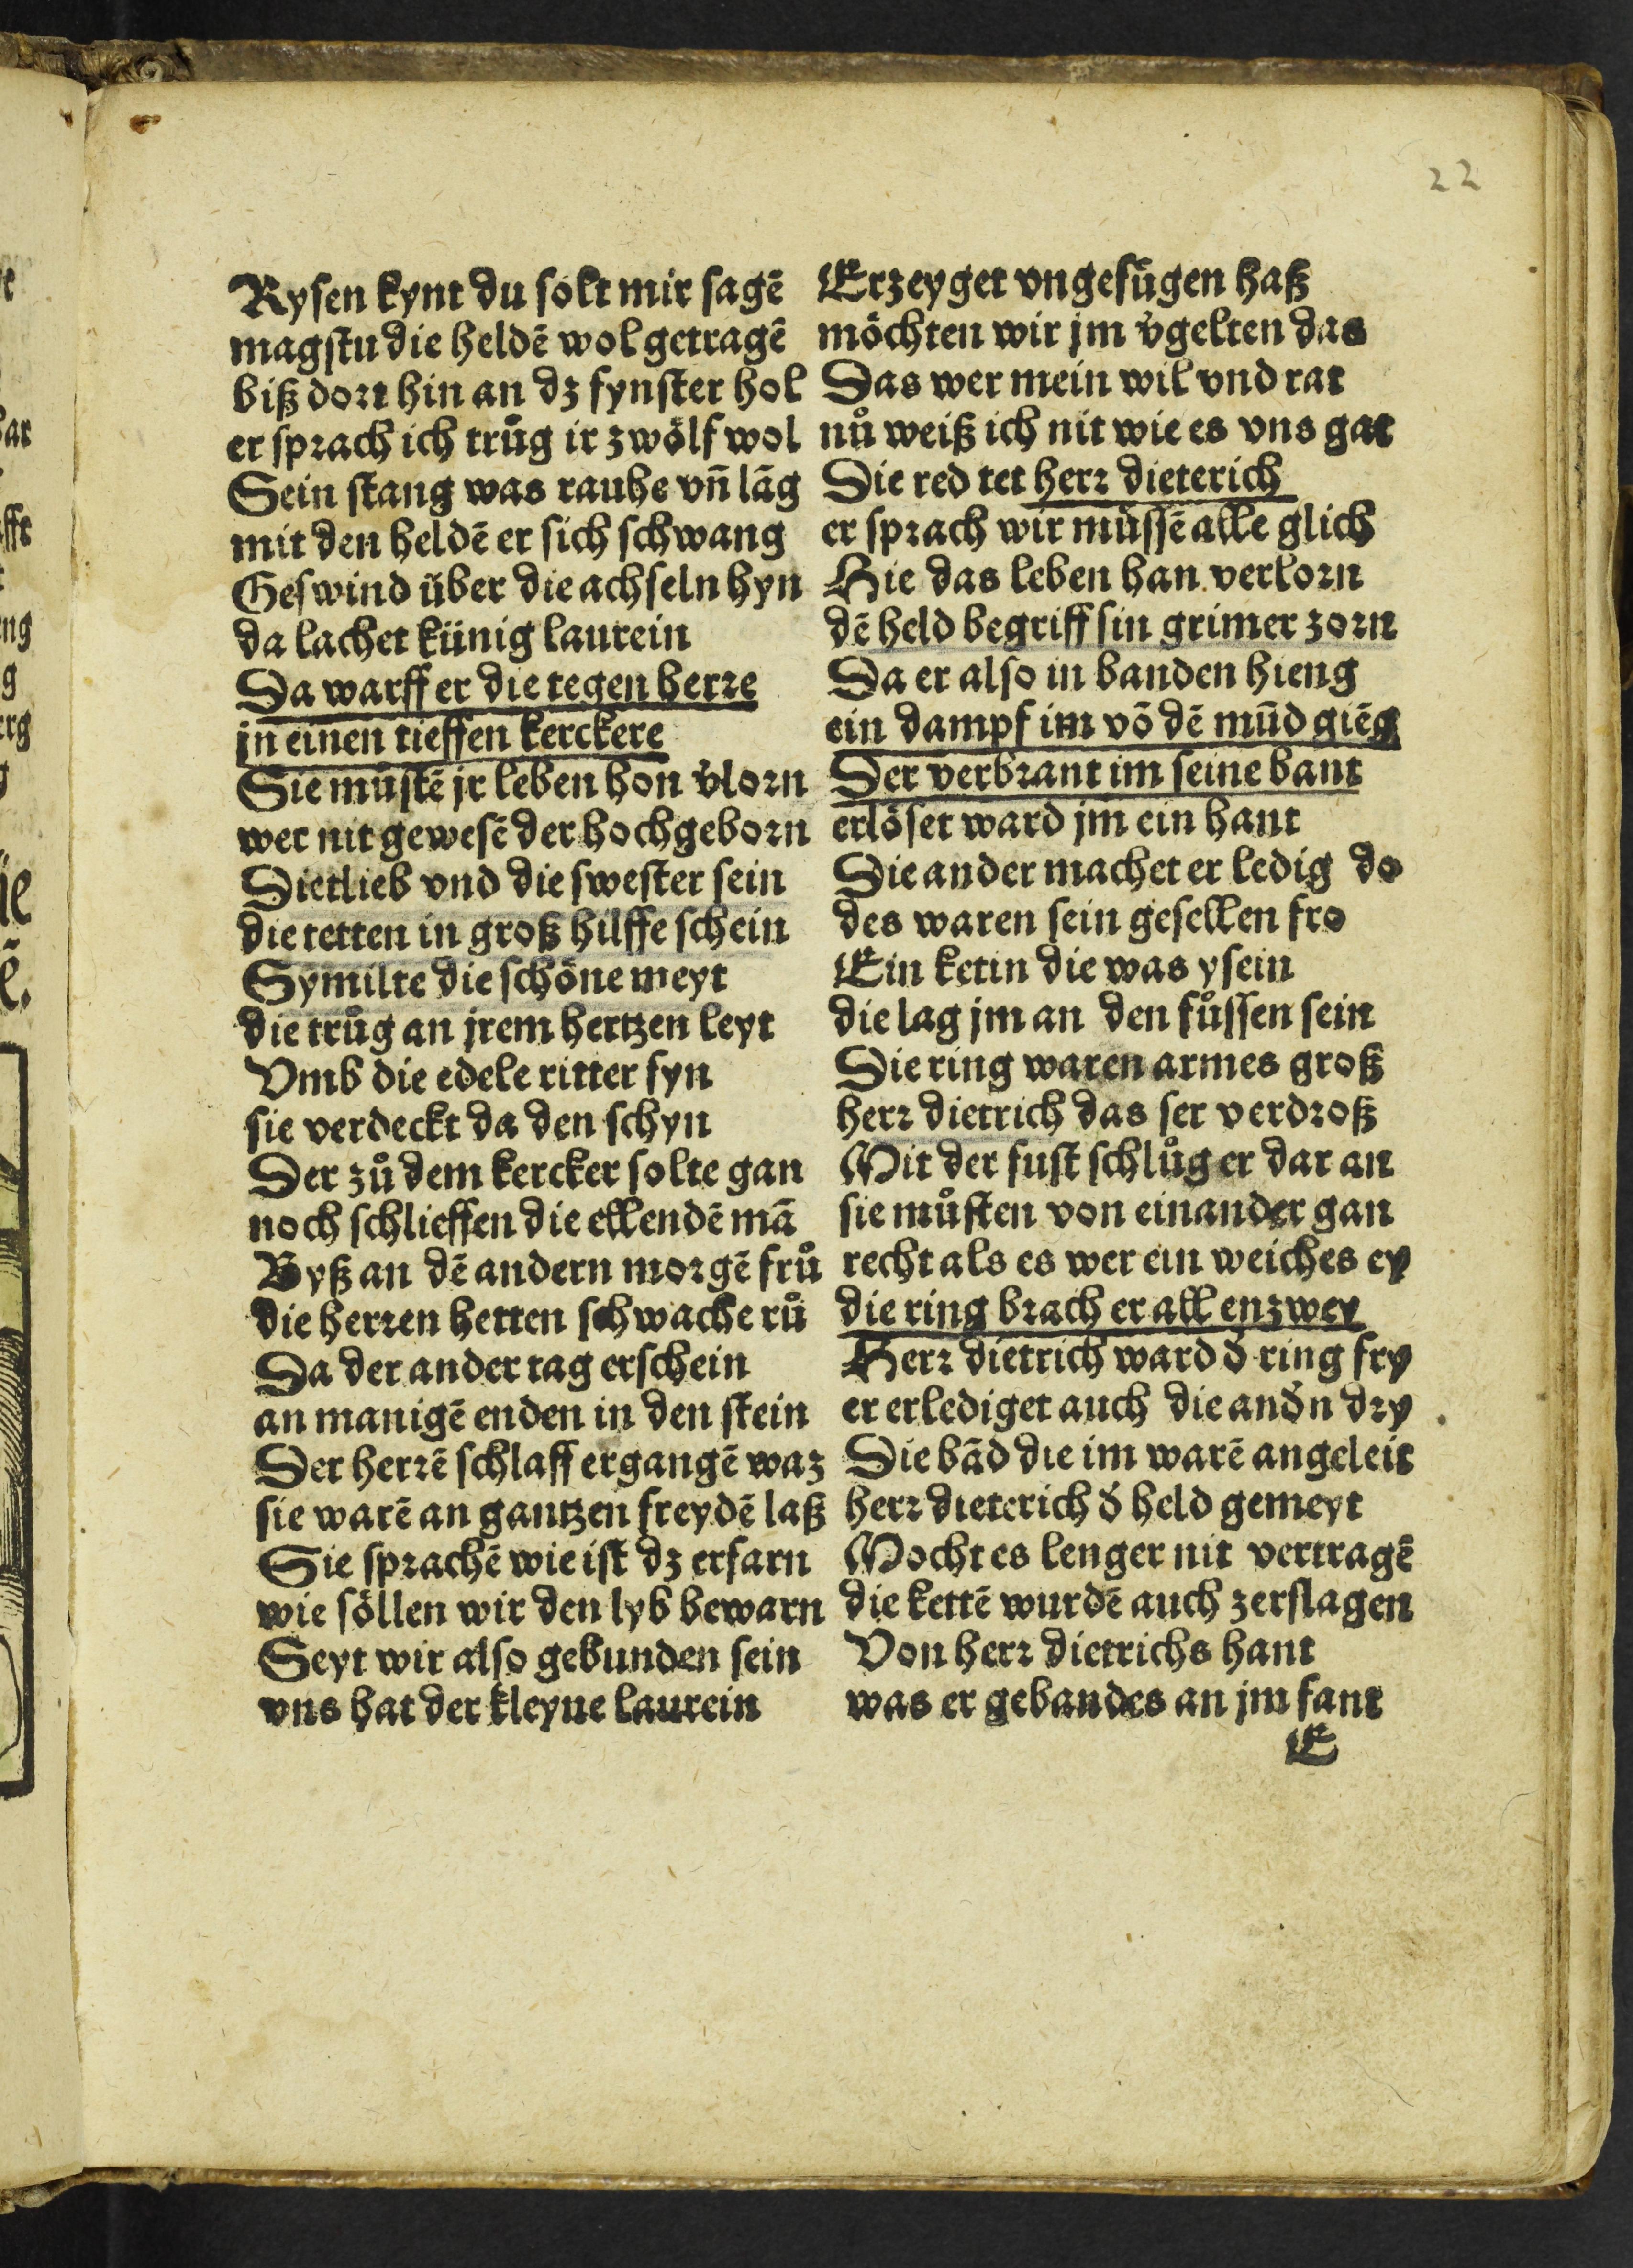 22
Rysen kynt du solt mir sagē
magstu die heldē wol getragē
biß dort hin an dz fynster hol
er sprach ich trůg ir zwölf wol
Sein stang was rauhe vn̄ lāg
mit den heldē er sich schwang
Geswind über die achseln hyn
da lachet künig laurein
Da warff er die tegen herre
jn einen tieffen kerckere
Sie mustē jr leben hon v̓lorn
wer nit gewesē der hochgeborn
Dietlieb vnd die swester sein
die tetten in groß hilffe schein
Symilte die schöne meyt
die trůg an jrem hertzen leyt
Vmb die edele ritter fyn
sie verdeckt da den schyn
Der zů dem kercker solte gan
noch schlieffen die ellendē mā
Byß an dē andern morgē frů
die herren hetten schwache rů
Da der ander tag erschein
an manigē enden in den stein
Der herrē schlaff ergangē waz
sie warē an gantzen freydē laß
Sie sprachē wie ist dz erfarn
wie söllen wir den lyb bewarn
Seyt wir also gebunden sein
vns hat der kleyne laurein
Erzeyget vngefůgen haß
möchten wir jm v̓gelten das
Das wer mein wil vnd rat
nů weiß ich nit wie es vns gat
Die red tet herr dieterich
er sprach wir můssē alle glich
Hie das leben han verlorn
dē held begriff sin grimer zorn
Da er also in banden hieng
ein dampf im vō dē mūd giēg
Der verbrant im seine bant
erlöset ward jm ein hant
Die ander machet er ledig do
des waren sein gesellen fro
Ein ketin die was ysein
die lag jm an den fůssen sein
Die ring waren armes groß
herr dietrich das ser verdroß
Mit der fust schlůg er dar an
sie můsten von einander gan
recht als es wer ein weiches ey
die ring brach er all enzwey
Herr dietrich ward d̓ ring fry
er erlediget auch die and̓n dry
Die bād die im warē angeleit
herr dieterich d̓ held gemeyt
Mocht es lenger nit vertragē
die kettē wurdē auch zerslagen
Von herr dietrichs hant
was er gebandes an jm fant
E